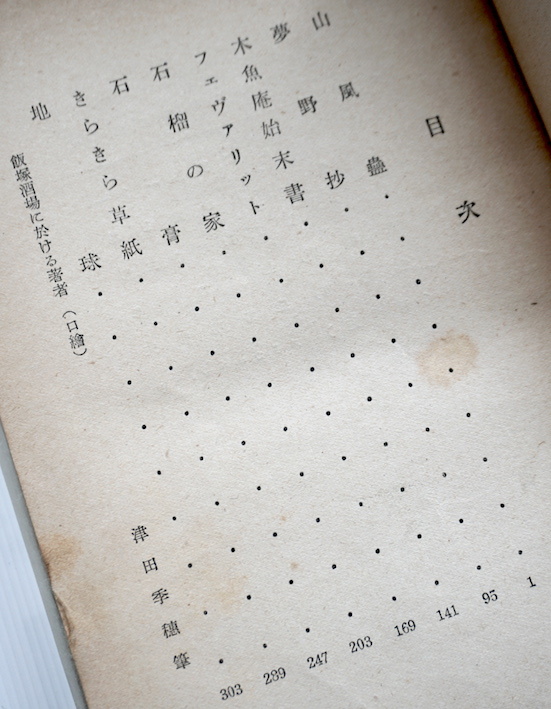 目次
山風蠱 1
夢野抄 95
木魚庵始末書 141
フェヴァリット 169
石榴の家 203
石膏 247
きらきら草紙 289
地球 303
飯塚酒場に於ける著者（口繪） 津田季穗筆